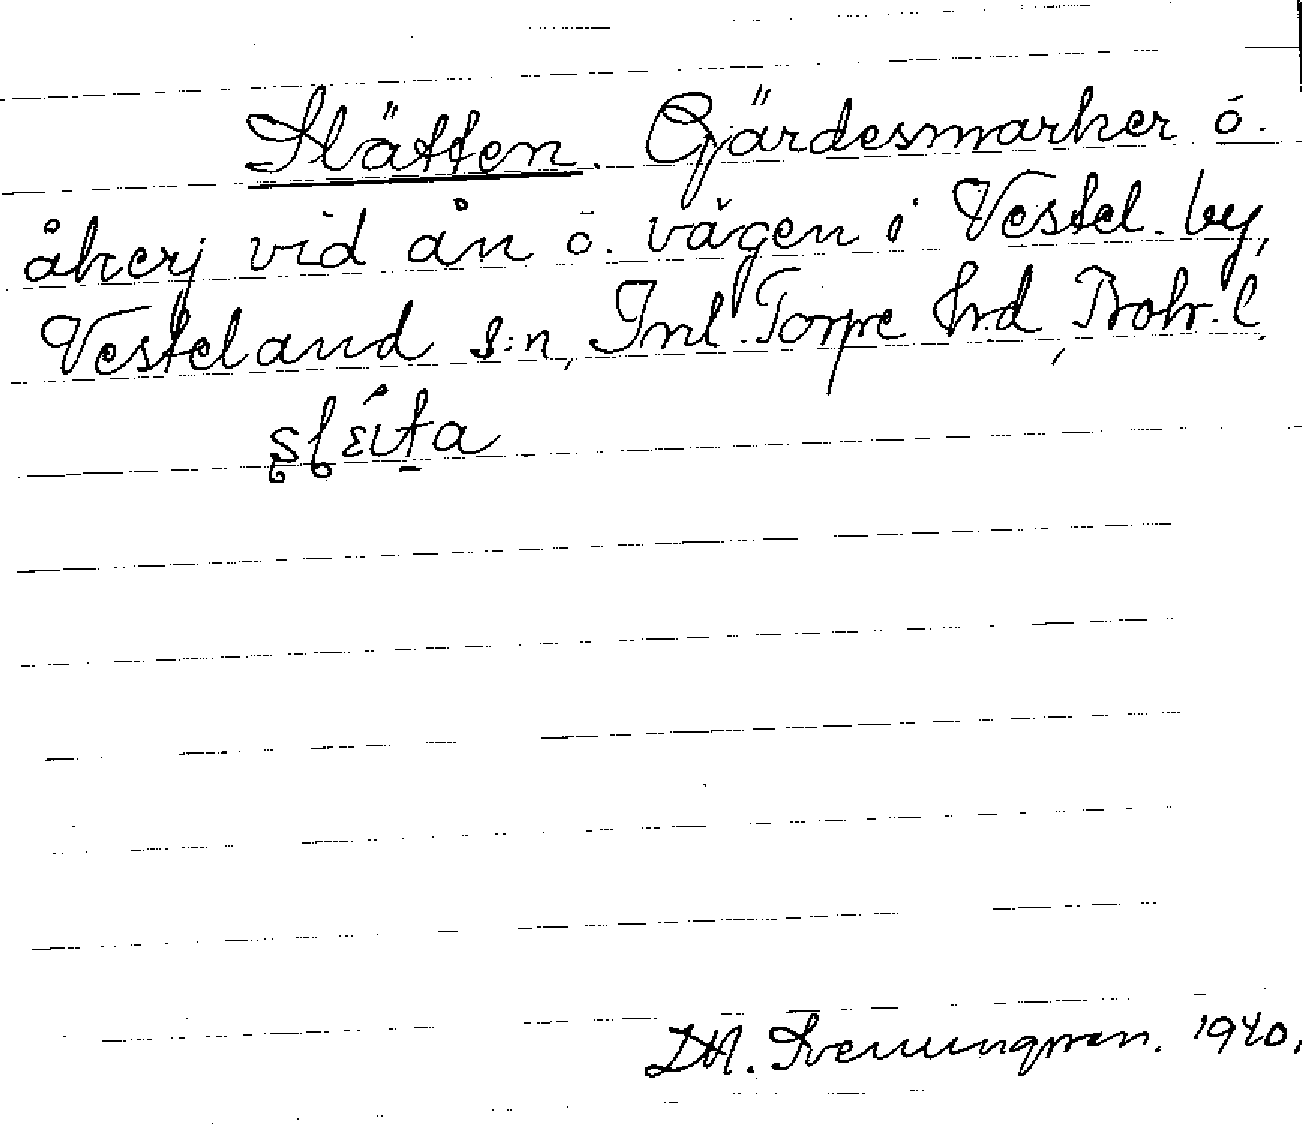 Slätten. Gärdesmarker o.
åkerj vid ån o. vägen i Vestel. by,
Vesteland s:n, Inl. Torpe hrd, Boh. l.
slɛ́ita
D.A. Svenungsson. 1940.